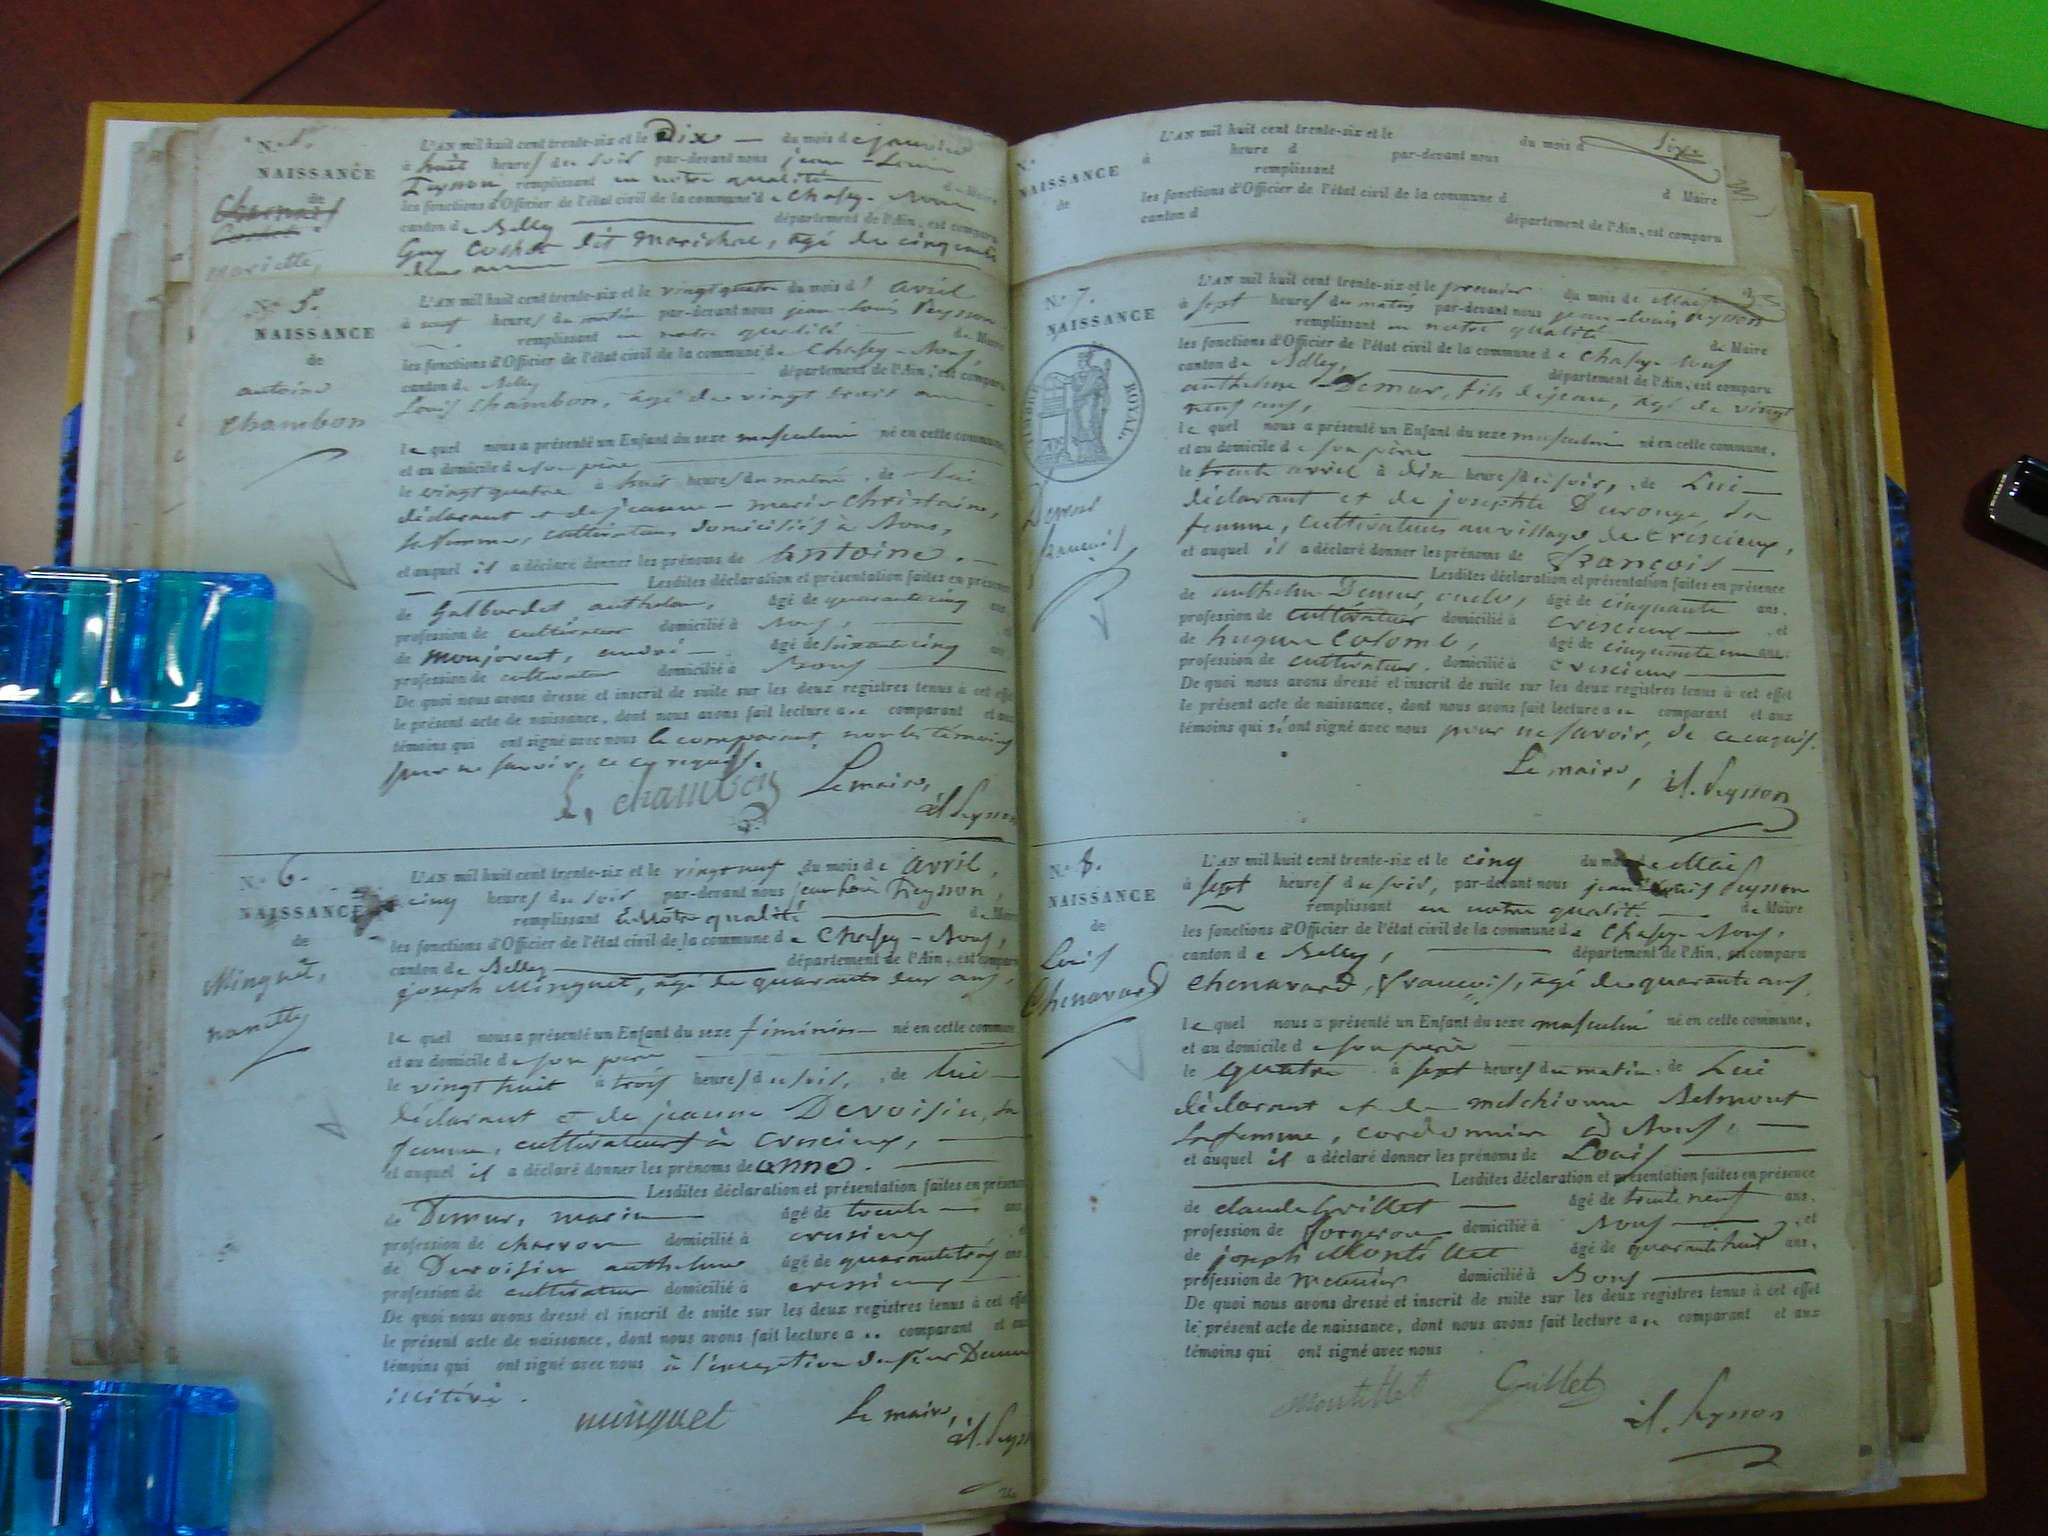 N.o 1.
NAISSANCE
de
Mariette,
L'AN mil huit cent trente-six et le Dix — du mois de janvier
à huit heures du soir par-devant nous jean-Louis
Peysson, remplissant en notre qualité de Maire
les fonctions d'Officier de l'état civil de la commune de Chasey-Bons
canton de Belley département de l'Ain, est comparu
Guy Cochet dit Marichal, agé de cinquante
N.o 5.
NAISSANCE
de
antoine
Chambon
L'AN mil huit cent trente-six et le vingt quatre du mois d'avril
à neuf heures du matin par-devant nous jean-Louis Peysson
remplissant en notre qualité de Maire
les fonctions d'Officier de l'état civil de la commune de Chasey-Bons,
canton de Belley département de l'Ain, est comparu
Louis Chambon, agé de vingt trois ans
le quel nous a présenté un Enfant du sexe masculin né en cette commune,
et au domicile de son père
le vingt quatre à huit heures du matin, de Lui
déclarant et de jeanne-marie Christaine,
sa femme, cultivateurs domiciliés à Bons,
et auquel il a déclaré donner les prénoms de Antoine.
Lesdites déclaration et présentation faites en présence
de Galburdet, anthelme, âgé de quarante cinq ans,
profession de cultivateur domicilié à Bons, et
de Monjovent, andré âgé de soixante cinq ans
profession de cultivateur domicilié à Bons
De quoi nous avons dressé et inscrit de suite sur les deux registres tenus à cet effet
le présent acte de naissance, dont nous avons fait lecture au comparant et aux
témoins qui ont signé avec nous le comparant, non les témoins
pour ne savoir, de ce requis.
L, chambon Le maire,
J.L. Peysson
N.o 6.
NAISSANCE
de
Minguet,
nanette
L'AN mil huit cent trente-six et le vingt neuf du mois de avril,
à cinq heures du soir par-devant nous jean Louis Peysson,
remplissant en notre qualité de Maire
les fonctions d'Officier de l'état civil de la commune de Chasey-Bons,
canton de Belley département de l'Ain, est comparu
joseph Minguet, agé de quarante deux ans,
le quel nous a présenté un Enfant du sexe féminin né en cette commune
et au domicile de son père
le vingt huit à trois heures du soir, de lui
déclarant et de jeanne Devoisin, sa
femme, cultivateurs à Crescieux,
et auquel il a déclaré donner les prénoms de anne.
Lesdites déclaration et présentation faites en présence
de Demur, marin âgé de trente ans
profession de charron domicilié à crescieux et
de Devoisin anthelme âgé de quarante trois ans
profession de cultivateur domicilié à cressieux
De quoi nous avons dressé et inscrit de suite sur les deux registres tenus à cet effet
le présent acte de naissance, dont nous avons fait lecture au comparant et aux
témoins qui ont signé avec nous à l'exception du sieur Demur
illitéré.
minguet Le maire,
J.L. Peysson
N.o
NAISSANCE
de
L'AN mil huit cent trente-six et le du mois d Six
à heure d par-devant nous
remplissant d Maire
les fonctions d'Officier de l'état civil de la commune d
canton d département de l'Ain, est comparu
N.o 7.
NAISSANCE
de
TIMBRE ROYAL.
Demur
françois,
L'AN mil huit cent trente-six et le premier du mois de Mai
à sept heures du matin par-devant nous jean-Louis Peysson
remplissant en notre qualité de Maire
les fonctions d'Officier de l'état civil de la commune de Chasey-Bons
canton de Belley, département de l'Ain, est comparu
anthelme Demur, fils de jean, agé de vingt
neuf ans,
le quel nous a présenté un Enfant du sexe masculin né en cette commune,
et au domicile de son père
le trente avril à dix heures du soir, de Lui
déclarant et de josephte Durouge, sa
femme, cultivateurs au village de Crescieux,
et auquel il a déclaré donner les prénoms de François
Lesdites déclaration et présentation faites en présence
de anthelme Demur, oncle, âgé de cinquante ans,
profession de cultivateur domicilié à crescieux et
de hugue Colomb, âgé de cinquante un ans.
profession de cultivateur. domicilié à crescieux
De quoi nous avons dressé et inscrit de suite sur les deux registres tenus à cet effet
le présent acte de naissance, dont nous avons fait lecture au comparant et aux
témoins qui n'ont signé avec nous pour ne savoir, de ce requis.
Le maire, J.L. Peysson
N.o 8.
NAISSANCE
de
Louis
Chenavard
L'AN mil huit cent trente-six et le cinq du mois de Mai
à sept heures du soir, par-devant nous jean Louis Peysson
remplissant en notre qualité de Maire
les fonctions d'Officier de l'état civil de la commune de Chasey-Bons,
canton de Belley, département de l'Ain, est comparu
Chenavard, françois, agé de quarante ans,
le quel nous a présenté un Enfant du sexe masculin né en cette commune,
et au domicile de son père
le quatre à sept heures du matin de Lui
déclarant et de melchionne Belmont
sa femme, cordonnier à Bons,
et auquel il a déclaré donner les prénoms de Louis
Lesdites déclaration et présentation faites en présence
de claude Grillet âgé de trente neuf ans.
profession de forgeron domicilié à Bons, et
de joseph Montillet âgé de quarante huit ans,
profession de meunier domicilié à Bons
De quoi nous avons dressé et inscrit de suite sur les deux registres tenus à cet effet
le présent acte de naissance, dont nous avons fait lecture au comparant et aux
témoins qui ont signé avec nous
montillet Grillet
J.L. Peysson